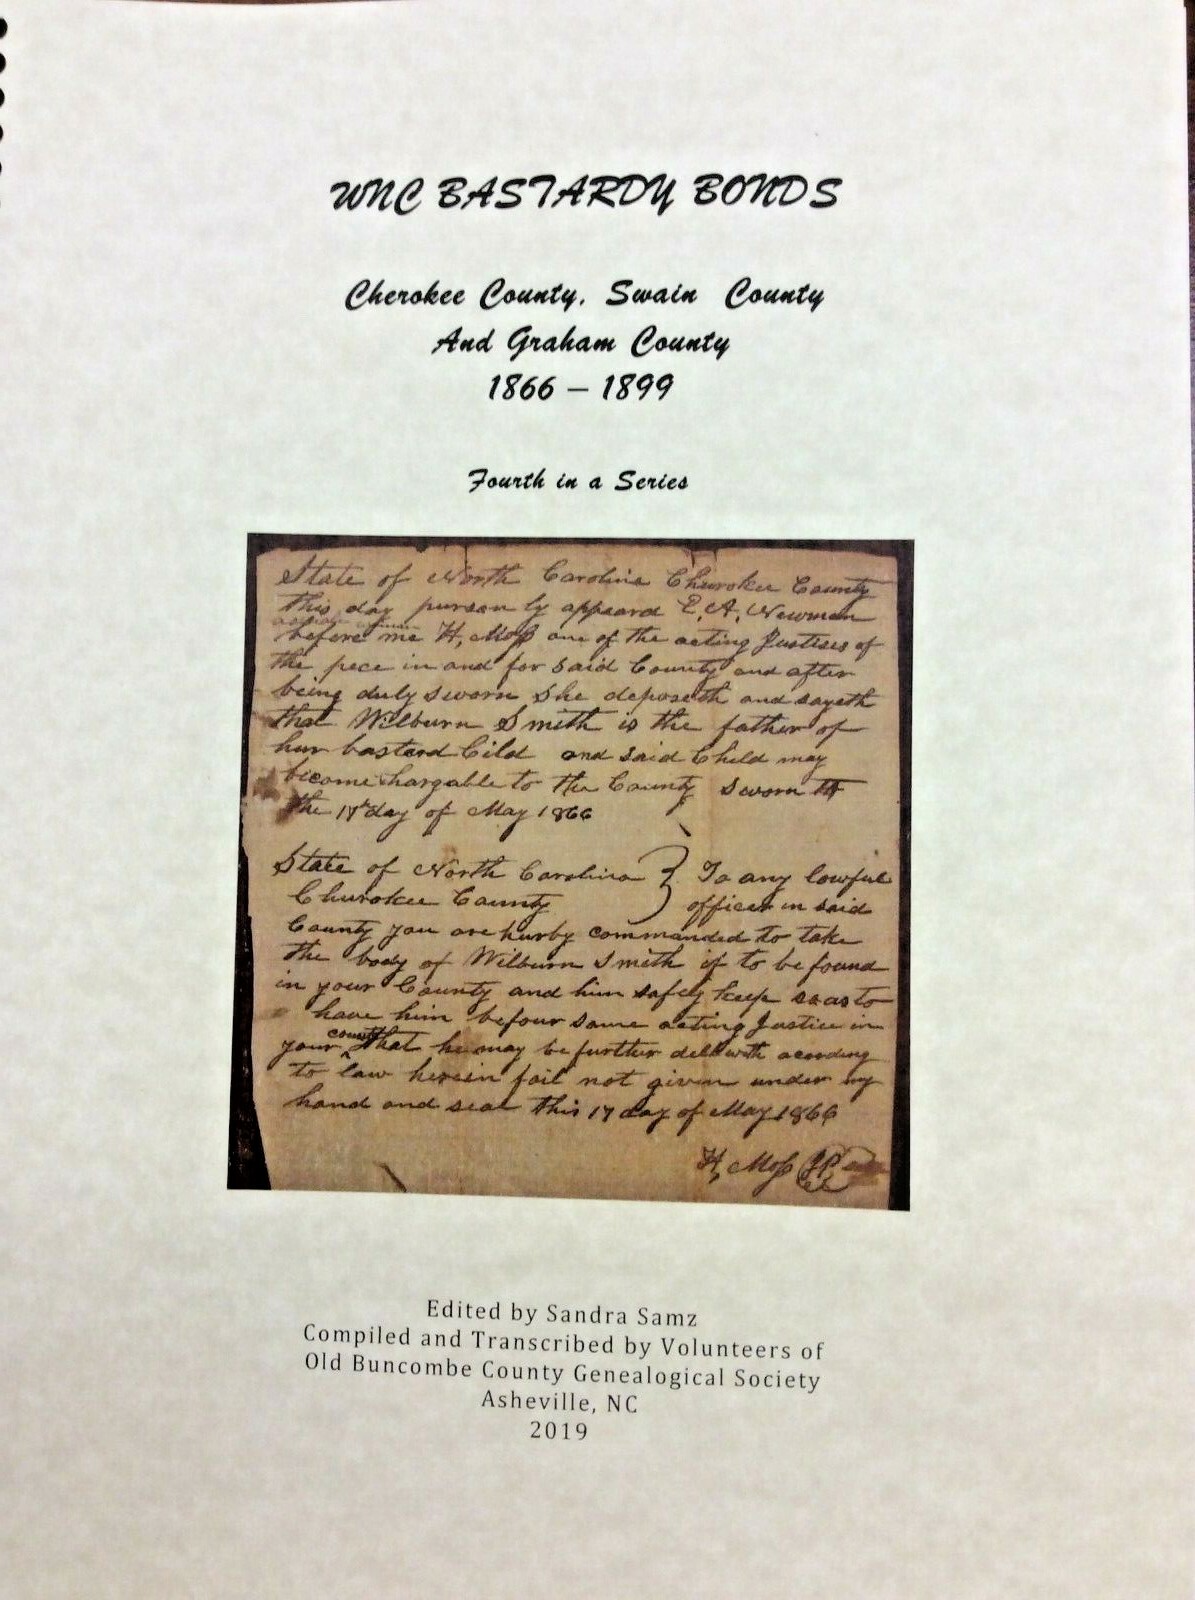 WNC BASTARDY BONDS
Cherokee County, Swain County
And Graham County
1866 – 1899
Fourth in a Series
State of North Carolina Churokee County
this day purson ly appeard E, A, Newman
before me H, Moss one of the acting Justises of
the pece in and for said County and after
being duly sworn She deposeth and sayeth
that Wilburn Smith is the father of
hur bastard Cild and said Child may
become chargable to the County sworn to
the 17th day of May 1866
State of North Carolina } To any lawful
Churokee County officer in said
County you are hurby commanded to take
the body of Wilburn Smith if to be found
in your County and him safely keep so as to
have him befour some acting Justice in
your county that he may be further delt with acording
to law herein fail not given under my
hand and seal this 17 day of May 1866
H, Moss JP
Edited by Sandra Samz
Compiled and Transcribed by Volunteers of
Old Buncombe County Genealogical Society
Asheville, NC
2019